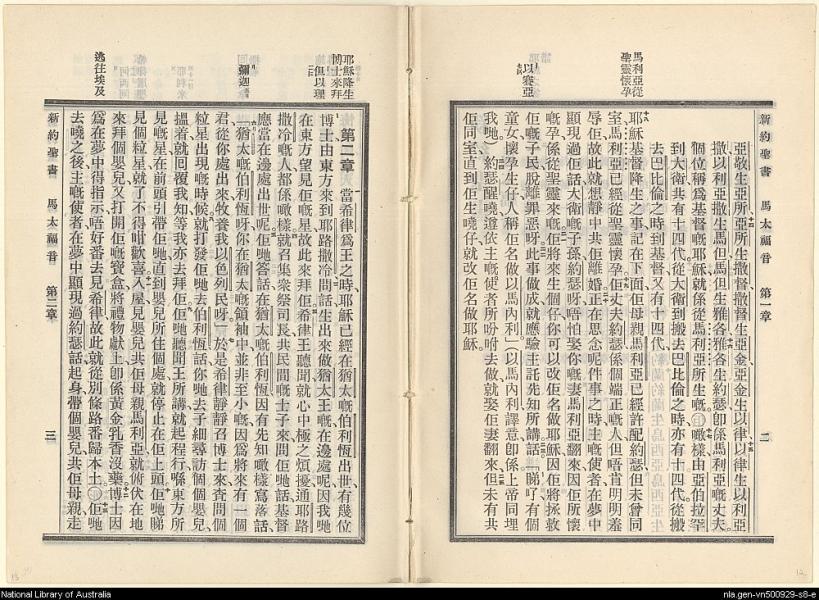 馬利亞從
聖靈懷孕
以賽亞
新約聖書 馬太福音 第一章 二
亞敬生亞所亞所生撒督撒督生亞金亞金生以律以律生以利亞
撒以利亞撒生馬但馬但生雅各雅各生約瑟卽係馬利亞嘅丈夫
個位稱爲基督嘅耶穌就係從馬利亞所生嘅噉樣由亞伯拉罕
到大衛共有十四代從大衛到搬去巴比倫之時亦有十四代從搬
去巴比倫之時到基督又有十四代
耶穌基督降生之事記在下面佢母親馬利亞已經許配約瑟但未曾同
室馬利亞已經從聖靈懷孕佢丈夫約瑟係個端正嘅人但唔肯明明羞
辱佢故此就想靜中共佢離婚正在思念呢件事之時主嘅使者在夢中
顯現過佢話大衛嘅子孫約瑟呀唔怕娶你嘅妻馬利亞翻來因佢所懷
嘅孕係從聖靈來嘅佢將來生個仔你可以改佢名做耶穌因佢將拯救
佢嘅子民脫離罪惡呀此事做成就應驗主託先知所講話睇吓有個
童女懷孕生仔人稱佢名做以馬內利以馬內利譯意卽係上帝同埋
我哋約瑟醒嘵遵依主嘅使者所吩咐去做就娶佢妻翻來但未有共
佢同室直到佢生嘵仔就改佢名做耶穌
耶穌降生
博士來拜
但以理
彌迦
逃往埃及
第二章 當希律爲王之時耶穌已經在猶太嘅伯利恆出世有幾位
博士由東方來到耶路撒冷問話生出來做猶太王嘅在邊處呢因我哋
在東方望見佢嘅星故此來拜佢希律王聽聞就心中極之煩擾通耶路
撒冷嘅人都係噉樣就召集衆祭司長共民間嘅士子來問佢哋話基督
應當在邊處出世呢佢哋答話在猶太嘅伯利恆因有先知噉樣寫落話
猶太嘅伯利恆呀你在猶太嘅領袖中並非至小嘅因爲將來有一個
君從你處出來牧養我以色列民呀於是希律靜靜召博士來查問個
粒星出現嘅時候就打發佢哋去伯利恆話你哋去子細尋訪個個嬰兒
搵着就回覆我知等我亦去拜佢佢哋聽聞王所講就起程行喺東方所
見嘅星在前頭引帶佢哋直到嬰兒所住個處就停止在佢上頭佢哋睇
見個粒星就了不得咁歡喜入屋見嬰兒共佢母親馬利亞就俯伏在地
來拜個嬰兒又打開佢嘅寶盒將禮物獻上卽係黃金乳香沒藥博士因
爲在夢中得指示唔好番去見希律故此就從別條路番歸本土佢哋
去嘵之後主嘅使者在夢中顯現過約瑟話起身帶個嬰兒共佢母親走
新約聖書 馬太福音 第二章 三
National Library of Australia
nla.gen-vn500929-s8-e